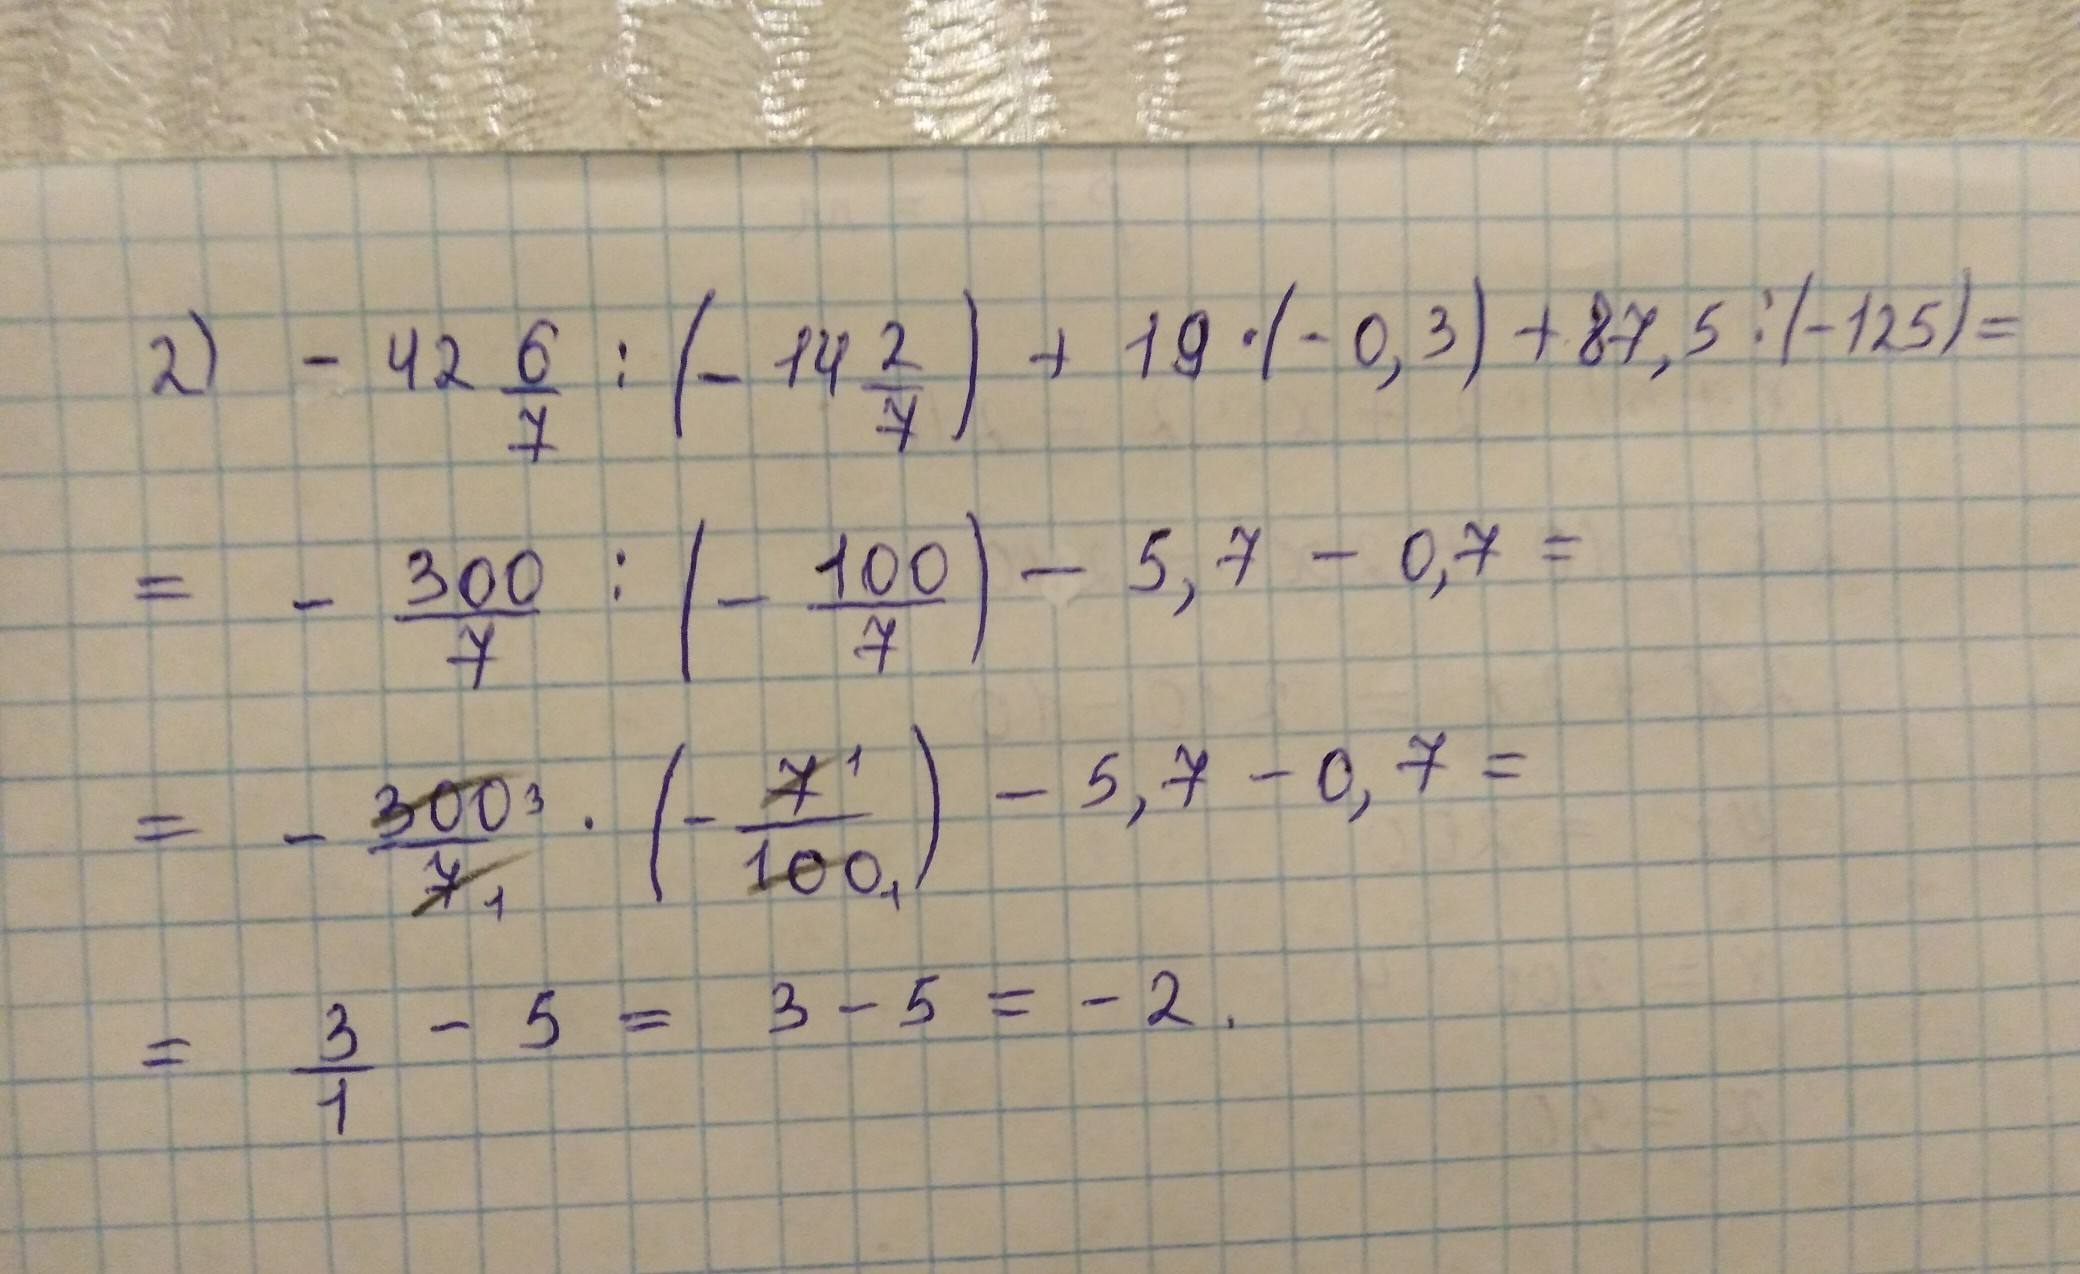 2) - 42 6/7 : (- 14 2/7) + 19 · (- 0,3) + 87,5 : (-125) =
= - 300/7 : (- 100/7) - 5,7 - 0,7 =
= - 300 3/7 1 · (- 7 1/100 1) - 5,7 - 0,7 =
= 3/1 - 5 = 3 - 5 = - 2.